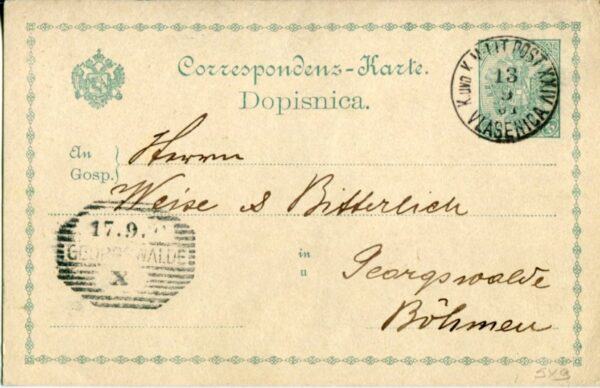 Correspondenz-Karte.
Dopisnica.
K. UND K. MILIT. POST XXIV
13
9
VLASENICA
An
Gosp.
Herrn
Weise & Bitterlich
17.9.
GEORGSWALDE
X
in
u
Georgswalde
Böhmen